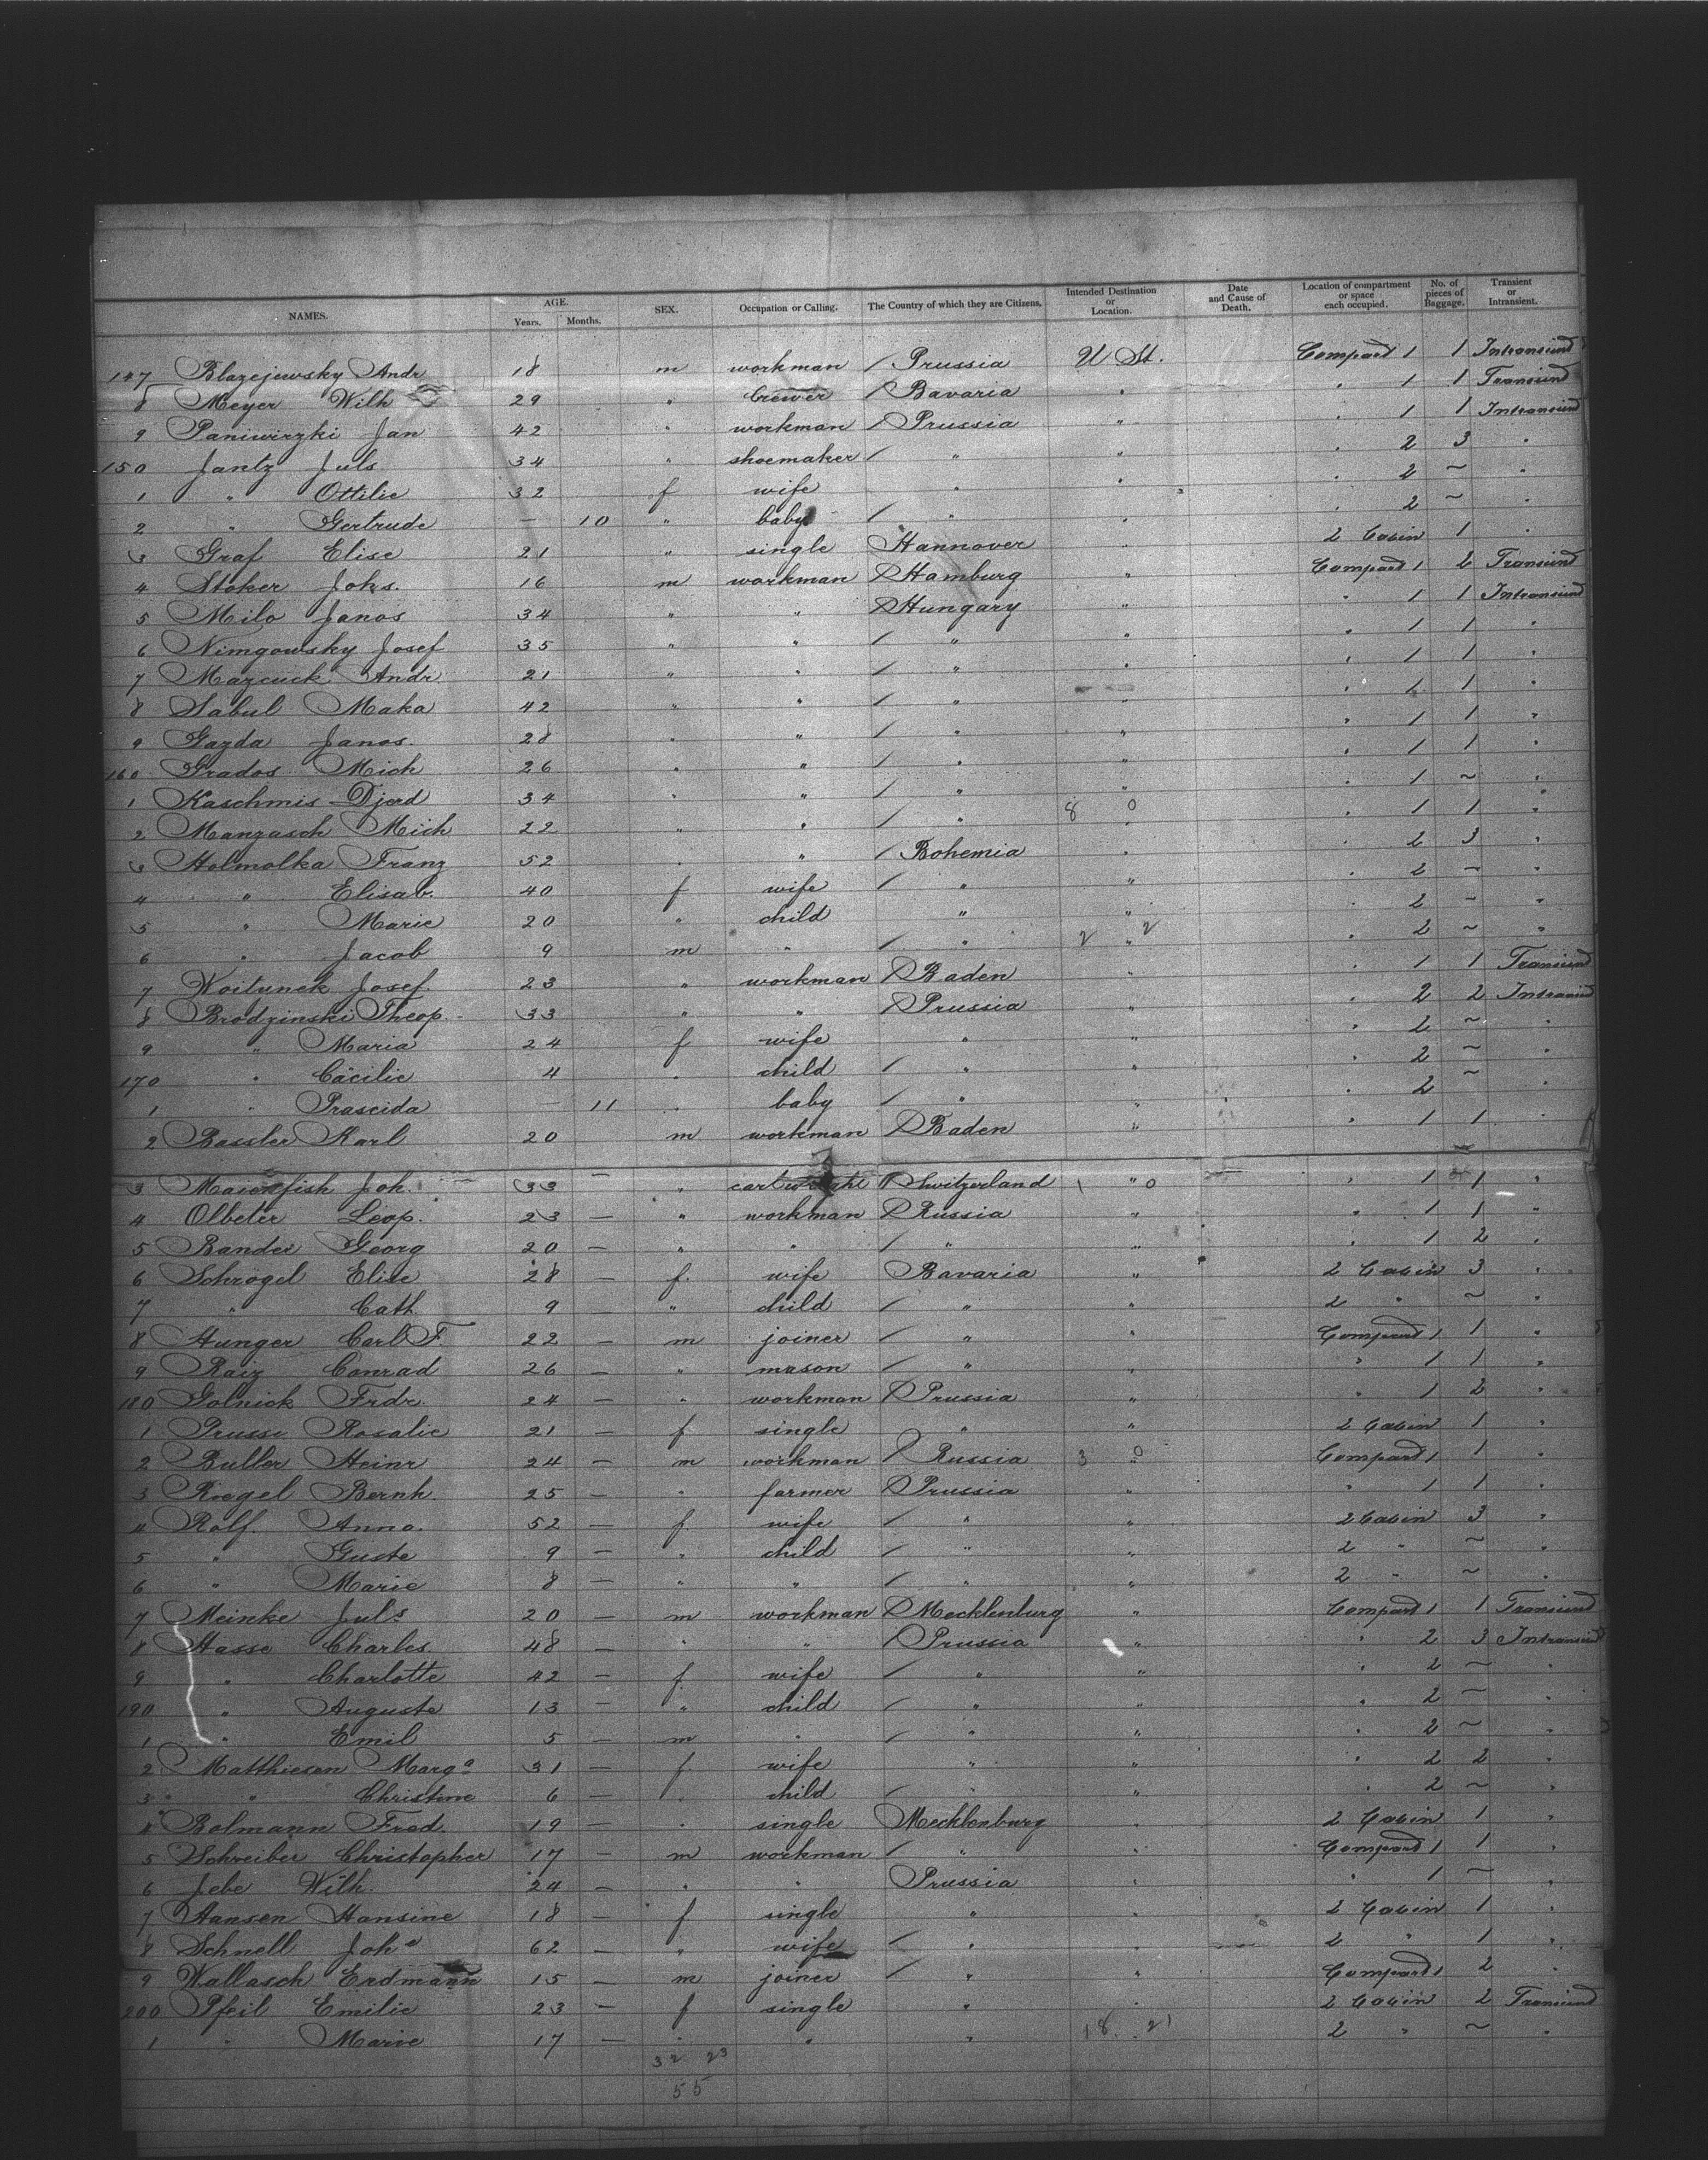 NAMES. AGE. Years. Months. SEX. Occupation or Calling. The Country of which they are Citizens. Intended Destination or Location. Date and Cause of Death. Location of compartment or space each occupied. No. of pieces of Baggage. Transient or Intransient.
147 Blazejewsky Andr 18 m workman / Prussia U St. Compard 1 1 Intransiend
8 Meyer Wilh 29 " brewer / Bavaria " " 1 1 Transiend
9 Paniwirzki Jan 42 " workman / Prussia " " 1 1 Intransiend
150 Jantz Juls 34 " shoemaker / " " " 2 3 "
1 " Ottilie 32 f wife " " " 2 ~ "
2 " Gertrude — 10 " baby / " " " 2 ~ "
3 Graf Elise 21 " single Hannover " 2 Cabin 1 "
4 Stoker Johs. 16 m workman / Hamburg " Compard 1 2 Transiend
5 Milo Janos 34 " " / Hungary " " 1 1 Intransiend
6 Nimgowsky Josef 35 " " / " " " 1 1 "
7 Mazcuck Andr. 21 " " / " " " 1 1 "
8 Sabul Maka 42 " " / " " " 1 1 "
9 Gazda Janos. 28 " " / " " " 1 1 "
160 Grados Mich 26 " " / " " " 1 1 "
1 Kaschmis Djord 34 " " / " " " 1 ~ "
8 0
2 Manzasch Mich 22 " " / " " " 1 1 "
3 Holmolka Franz 52 " " / Bohemia " " 2 3 "
4 " Elisab. 40 f wife / " " " 2 ~ "
5 " Marie 20 " child " " " 2 ~ "
6 " Jacob 9 m " / " 2 " 2 " 2 ~ "
7 Woitunek Josef 23 " workman / Baden " " 1 1 Transiend
8 Brodzinski Theop. 33 " " / Prussia " " 2 2 Intransiend
9 " Maria 24 f wife " " " 2 ~ "
170 " Cäcilie 4 " child / " " " 2 ~ "
1 " Prascida — 11 " baby / " " " 2 "
2 Bassler Karl 20 m workman / Baden " " 1 1 "
3 Joh. 33 — " cartwright / Switzerland 1 " 0 " 1 1 "
4 Olbeter Leop. 23 — " workman / Russia " " 1 1 "
5 Bander Georg 20 — " " / " " " 1 2 "
6 Schrögel Elise 28 — f. wife Bavaria " 2 Cabin 3 "
7 " Cath. 9 — " child / " " 2 " ~ "
8 Hunger Carl F. 22 — m joiner / " " Compard 1 1 "
9 Raiz Conrad 26 — " mason / " " " 1 1 "
180 Golnick Frdr. 24 — " workman / Prussia " " 1 2 "
1 Prusse Rosalie 21 — f single " " 2 Cabin 1 "
2 Buller Heinr 24 — m workman / Russia 3 " 0 Compard 1 1 "
3 Riegel Bernh. 25 — " farmer / Prussia " " 1 1 "
4 Rolf. Anna. 52 — f. wife / " " 2 Cabin 3 "
5 " Guste 9 — " child / " " 2 " ~ "
6 " Marie 8 — " " / " " 2 " ~ "
7 Meinke Juls 20 — m workman / Mecklenburg " Compard 1 1 Transiend
8 Hasse Charles. 48 — " " / Prussia " " 2 3 Intransiend
9 " Charlotte 42 — f. wife / " " " 2 ~ "
190 " Auguste 13 — " child / " " " 2 ~ "
1 " Emil 5 — m " / " " " 2 ~ "
2 Matthiesen Marga 31 — f wife " " " 2 2 "
3 " Christine 6 — " child / " " " 2 ~ "
4 Bolmann Fred. 19 — " single Mecklenburg " 2 Cabin 1 "
5 Schreiber Christopher 17 — m workman / " " Compard 1 1 "
6 Jebe Wilh. 24 — " " Prussia " " 1 ~ "
7 Hansen Hansine 18 — f single " " 2 Cabin 1 "
8 Schnell Joha 62 — " wife / " " 2 " 1 "
9 Wallasch Erdmann 15 — m joiner / " " Compard 1 2 "
200 Pfeil Emilie 23 — f single " " 2 Cabin 2 Transiend
1 " Marie 17 — " " " 18 . 21 2 " ~ "
32 23
55